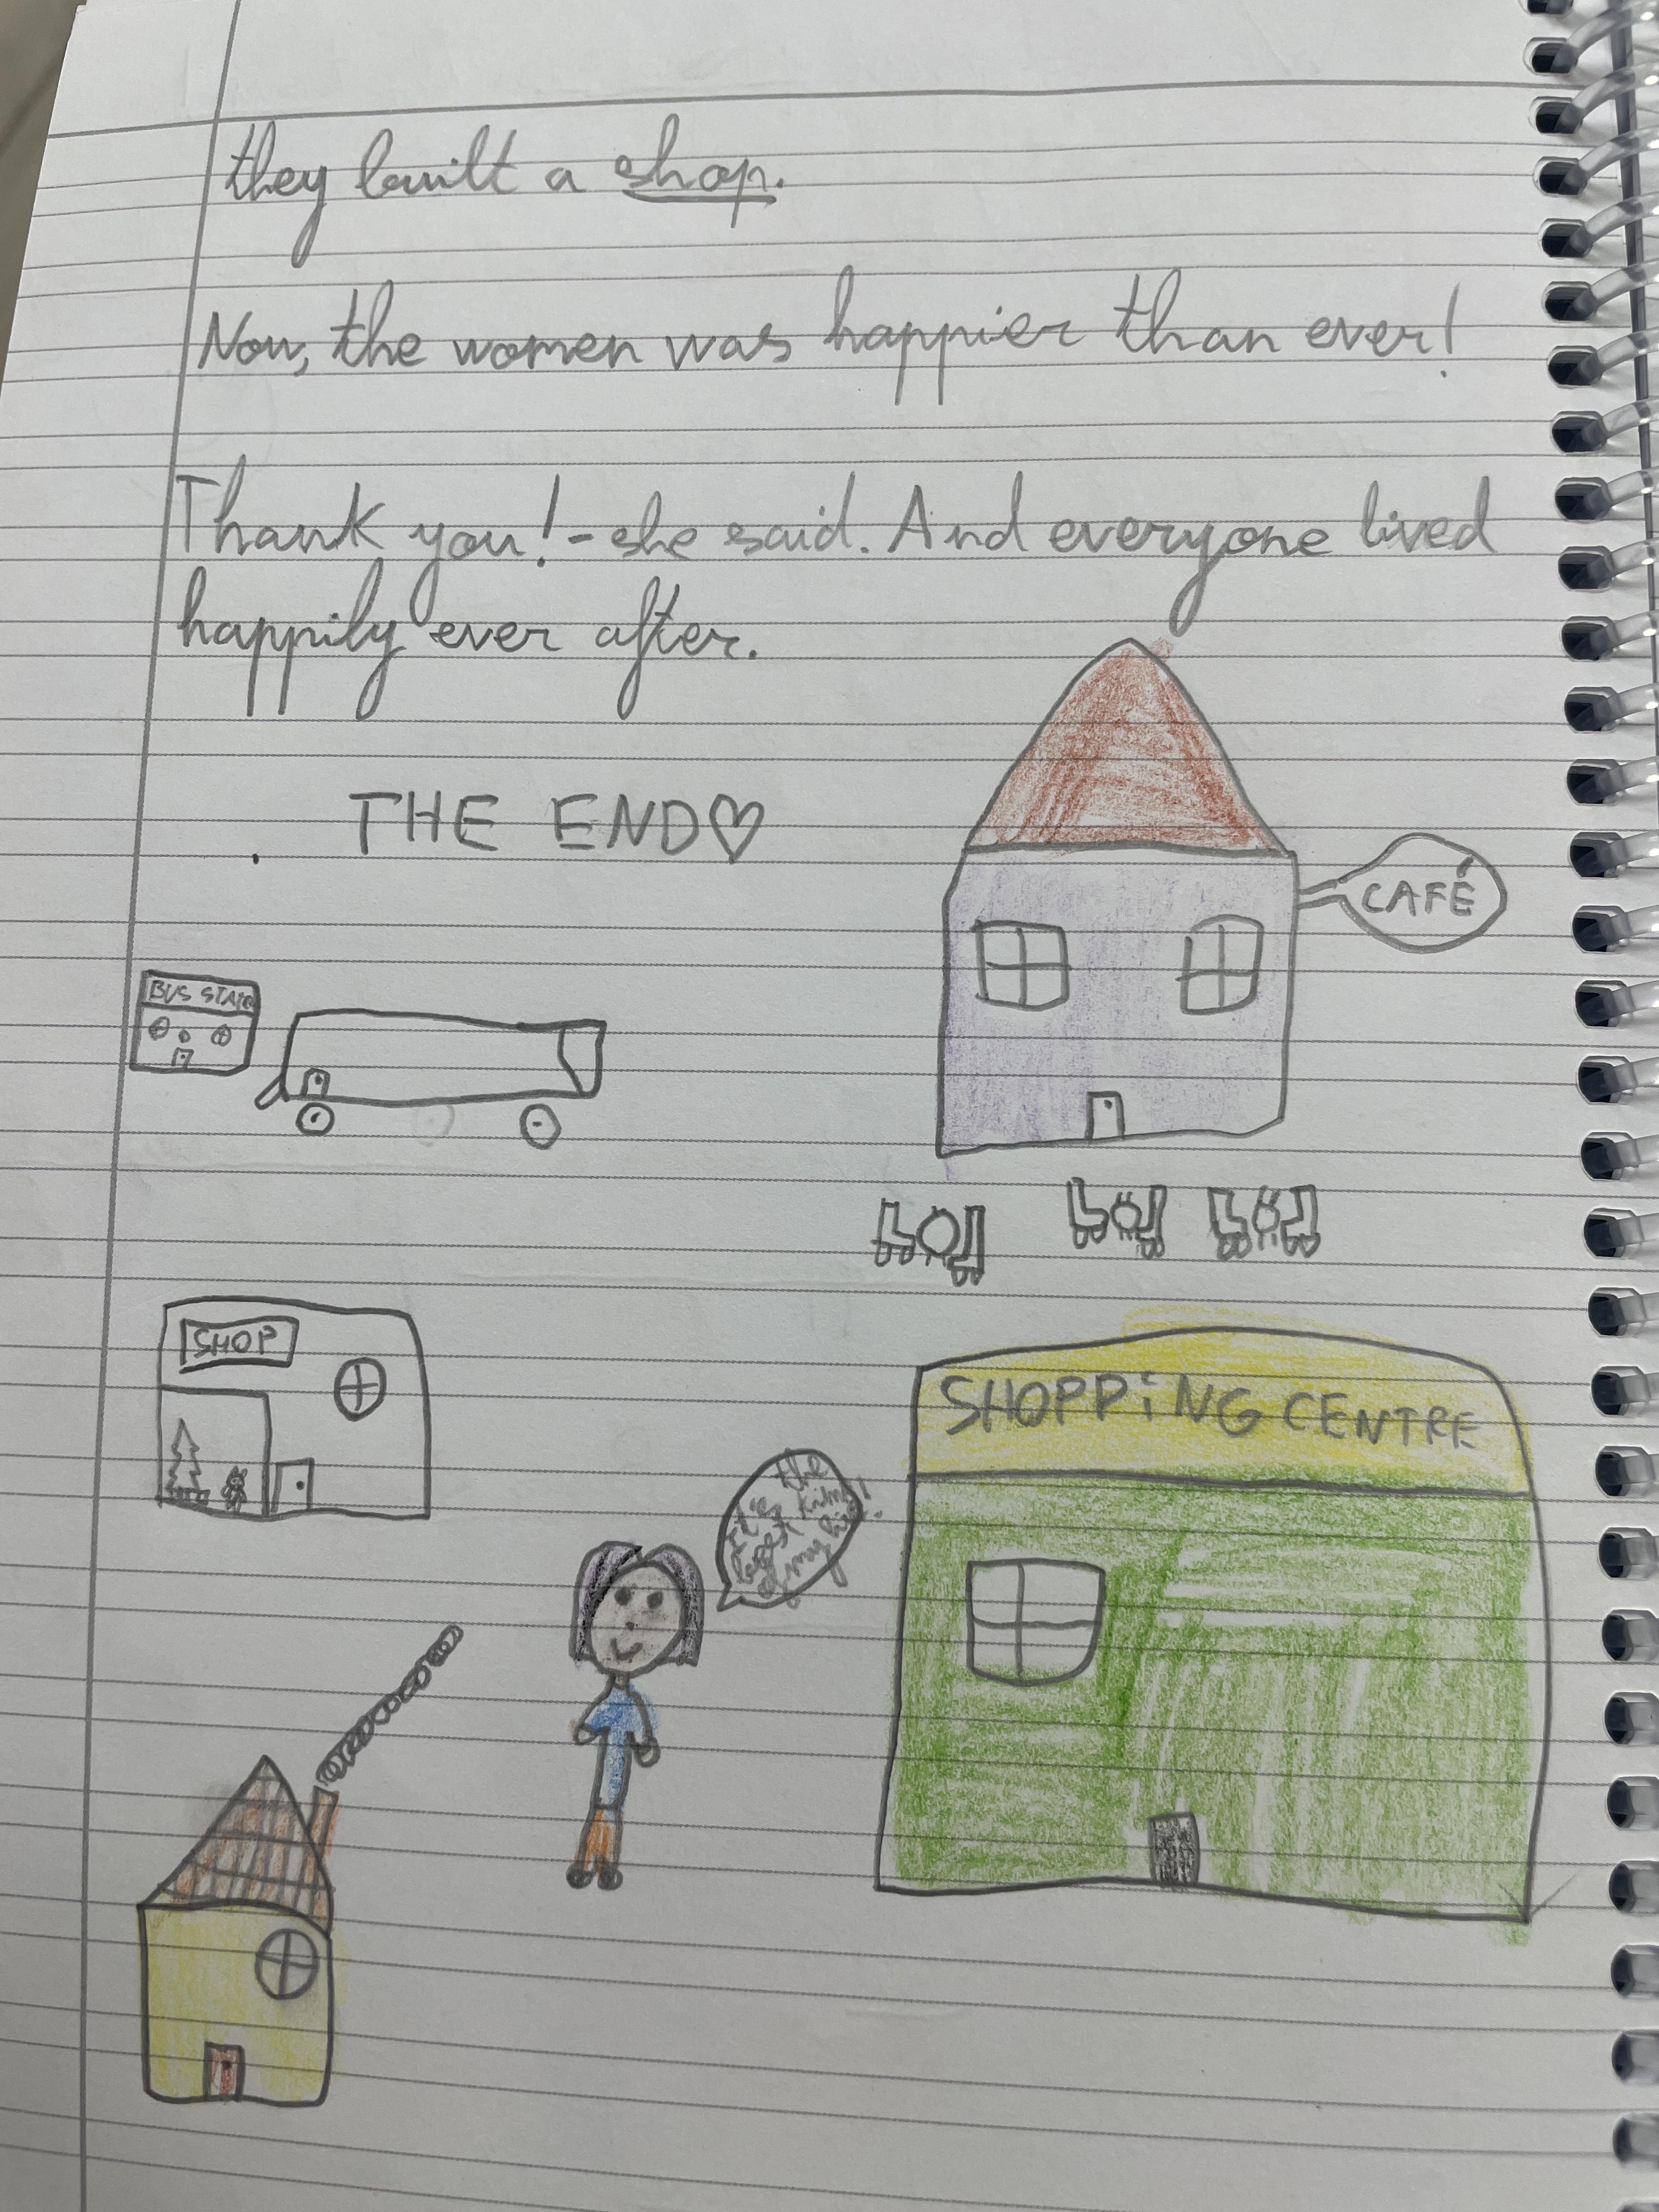 they built a shop.
Now, the women was happier than ever!
Thank you! - she said. And everyone lived
happily ever after.
THE END♡
CAFÉ
BUS STATIO
SHOP
SHOPPiNG CENTRE
It's the
best
of my